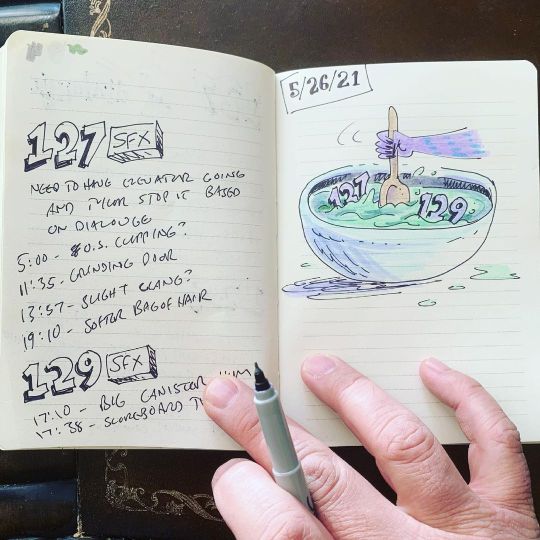 127 SFX
NEED TO HAVE ELEVATOR GOING
AND THEN STOP IT BASED
ON DIALOUGE
5:00 - O.S. CLAPPING?
11:35 - GRINDING DOOR
13:57 - SLIGHT CLANG?
19:10 - SOFTER BAG OF HAIR
129 SFX
17:10 - BIG CANISTER
17:38 - SCOREBOARD
5/26/21
127
129